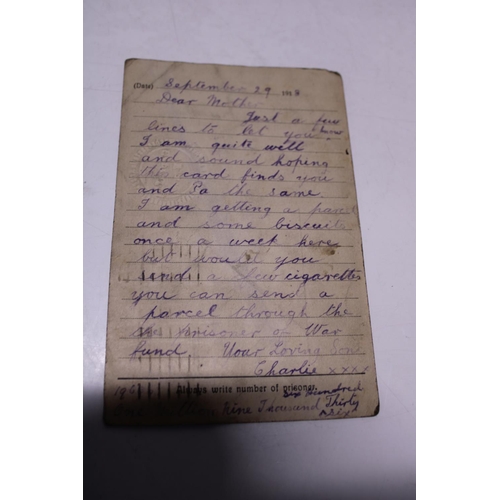 (Date) September 29 1918
Dear Mother
Just a few
lines to let you know
I am quite well
and sound hoping
this card finds you
and Pa the same
I am getting a parcel
and some biscuits
once a week here
but would you
send a few cigarettes
you can send a
parcel through the
Prisoner of War
fund. Your Loving Son
Charlie xxxx
Always write number of prisoner.
Six Hundred
Nine Thousand Thirty